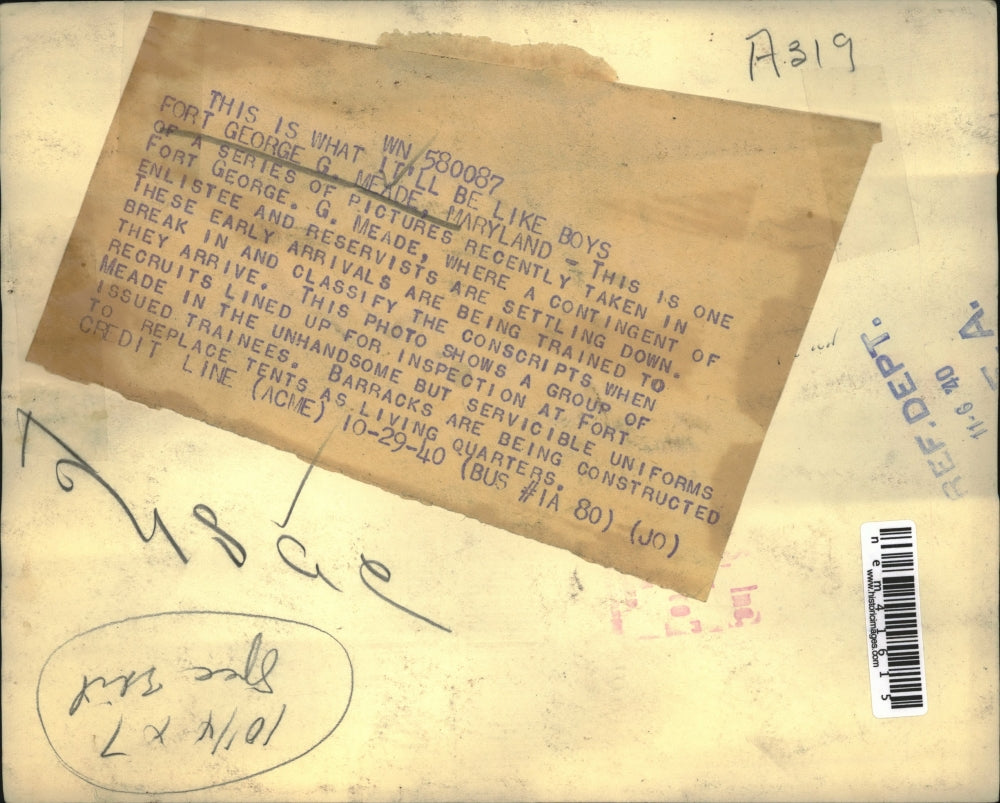 A319
WN 580087
THIS IS WHAT IT'LL BE LIKE BOYS
FORT GEORGE G. MEADE, MARYLAND - THIS IS ONE
OF A SERIES OF PICTURES RECENTLY TAKEN IN
FORT GEORGE. G. MEADE, WHERE A CONTINGENT OF
ENLISTEE AND RESERVISTS ARE SETTLING DOWN.
THESE EARLY ARRIVALS ARE BEING TRAINED TO
BREAK IN AND CLASSIFY THE CONSCRIPTS WHEN
THEY ARRIVE. THIS PHOTO SHOWS A GROUP OF
RECRUITS LINED UP FOR INSPECTION AT FORT
MEADE IN THE UNHANDSOME BUT SERVICIBLE UNIFORMS
ISSUED TRAINEES. BARRACKS ARE BEING CONSTRUCTED
TO REPLACE TENTS AS LIVING QUARTERS.
CREDIT LINE (ACME) 10-29-40 (BUS #1A 80) (JO)
REF. DEPT.
11-6 '40
A.
Inc.
nem41615
www.historicimages.com
10 1/4 x 7